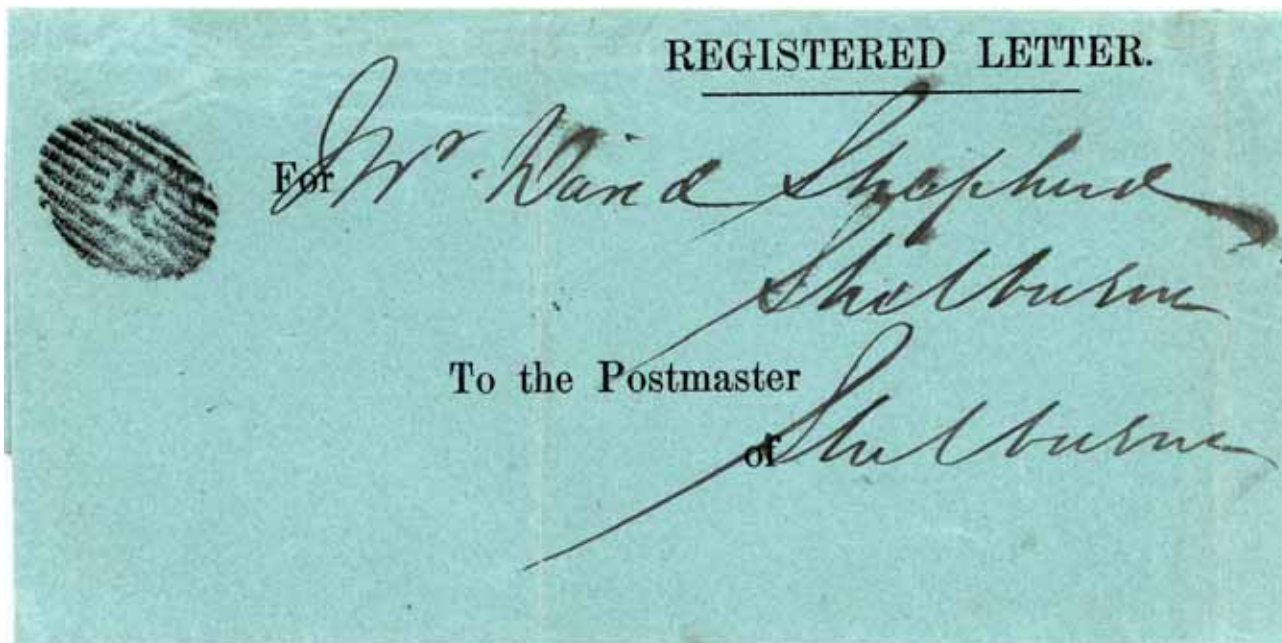 REGISTERED LETTER.
For Mr. David Shepherd
Shelburne
To the Postmaster
of Shelburne
H